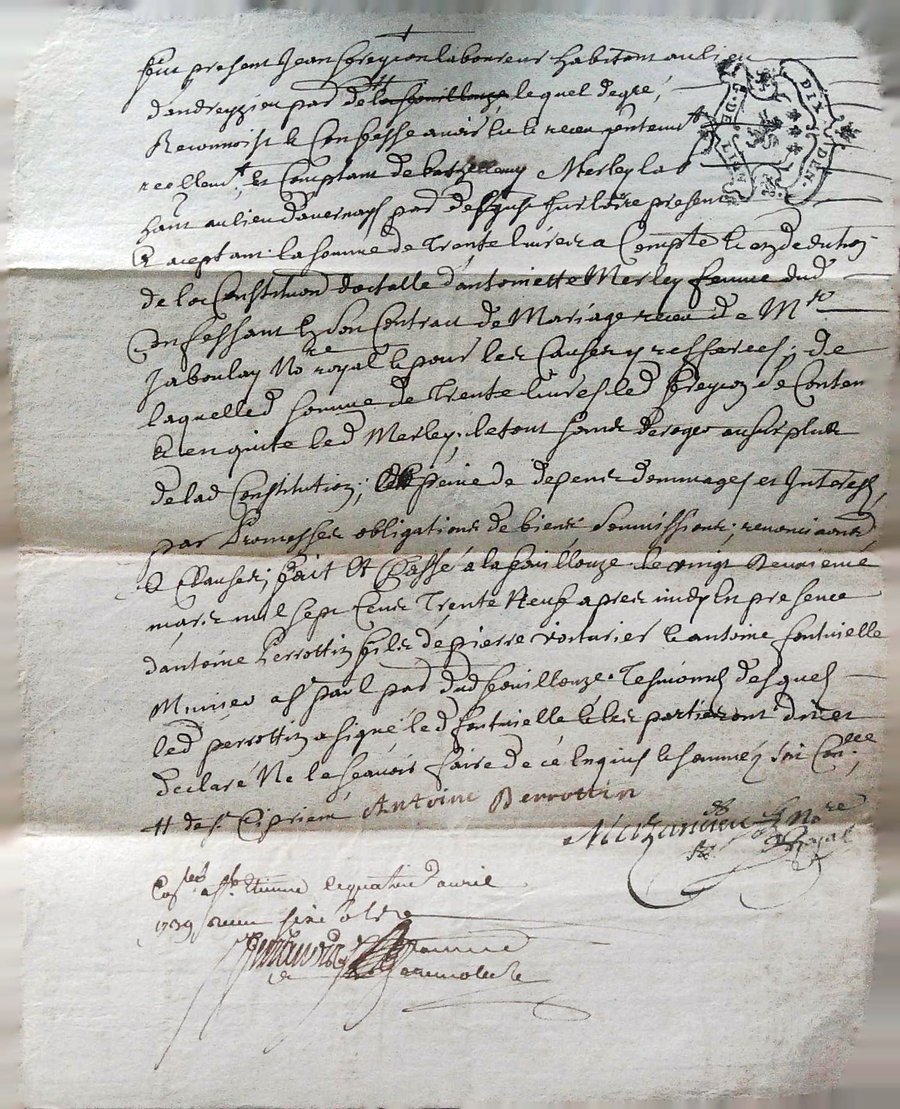 fut present Jean freycon laboureur habitant au lieu
dandreyzieu par de la fouillouze lequel de gré,
Reconnoist & Confesse avoir eu & receu
reellemt & Comptant de Barthellemy Merley lab
hant au lieu par de st Just sur loire present
& aceptant la somme de Trente livres a Compte &
de la Constitution dotalle d'antoinette Merley femme dud
Confessant En son Contrat de Mariage receu de Mre
Jaboulay Nore royal & pour les Causes y refferees, de
laquelled somme de Trente livres led freycon se Conten
& en quite led Merley, le tout sans deroger au surplus
de lad Constitution; peine de depens dommages et Interests,
par Promesses obligations de biens soumissions, renonciaons
& Clauses, fait Et Passé a la fouillouze le vingt deuxieme
mars mil sept Cens Trente Neuf apres midy En presence
d'antoine Perrottin fils de pierre voiturier & antoine fontvielle
Munier par dud fouillouze Tesmoins desquels
led perrottin a signé led fontvielle & les parties ont
declaré Ne le sçavoir faire de ce Enquis & sommés
H de st Cipriem Antoine Berrottin
nore
Royal
DIX DEN.
G. DE
a st Etienne le quatre d'avril
1739 receu